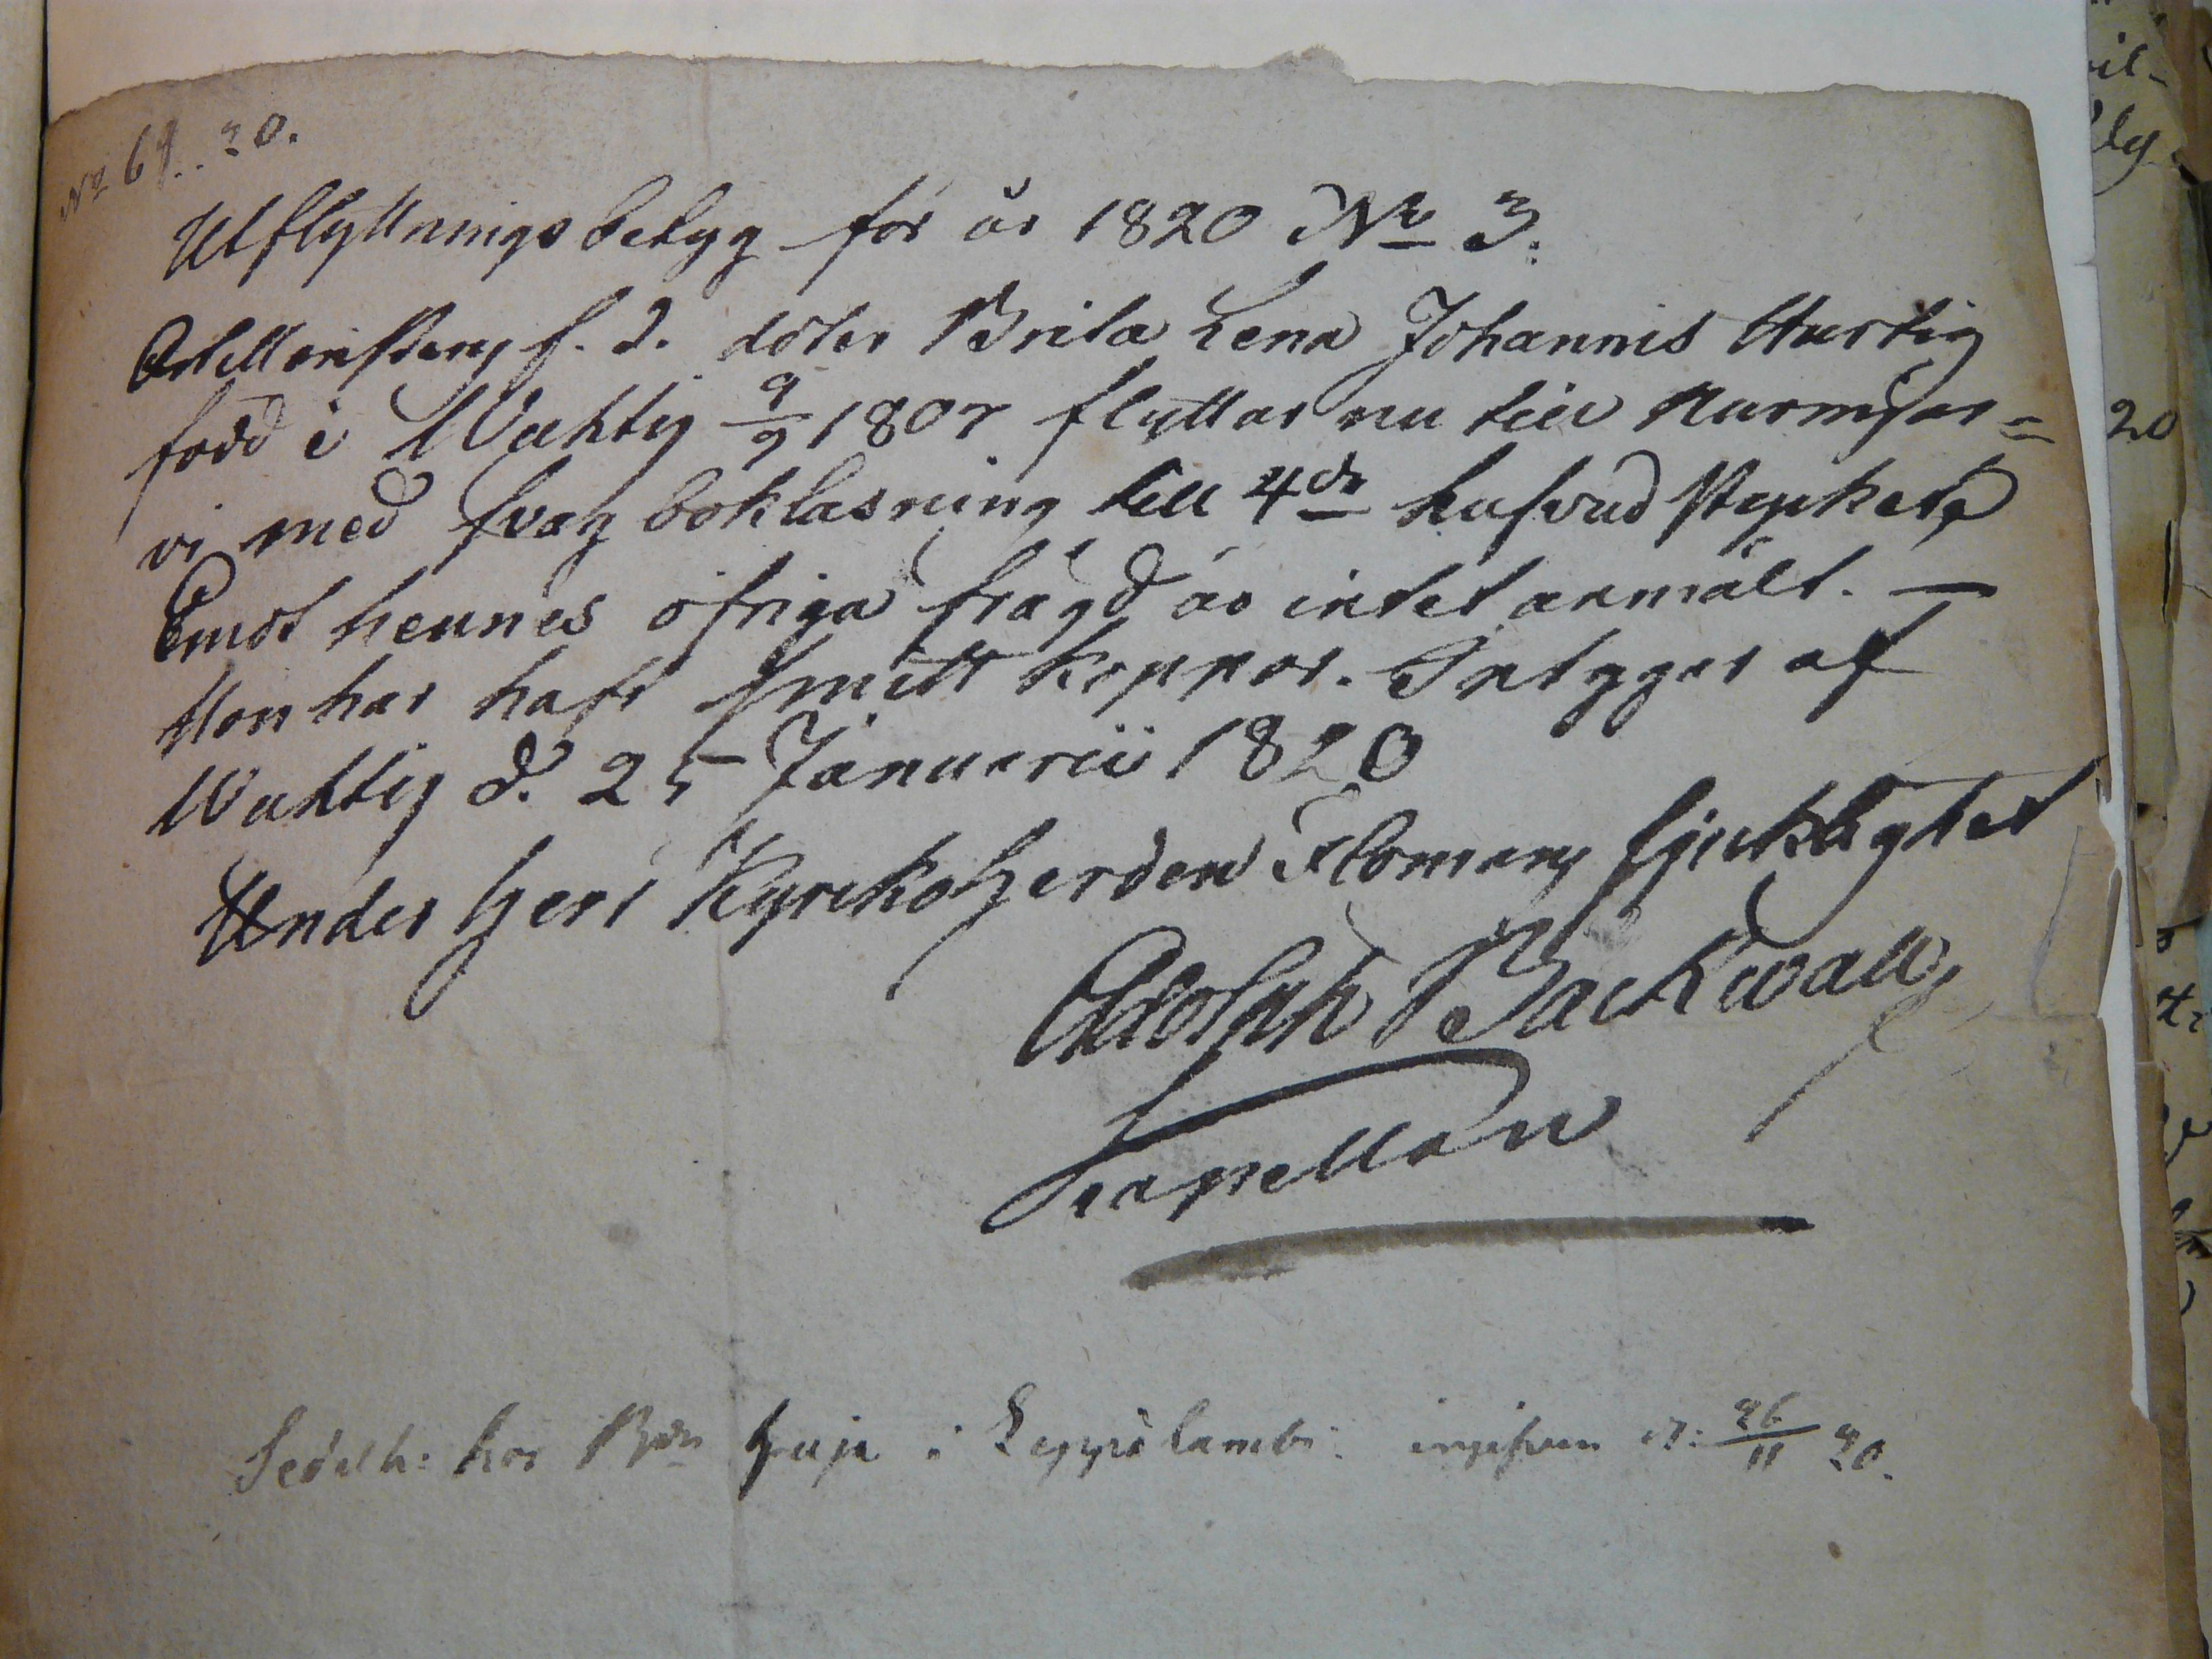 No 69..20.
Utflyttnings betyg för år 1820 No 3.
Artilleristens f. d. doter Brita Lena Johannis Hurtig
född i Wichtis 9/9 1807 flyttar nu till Nurmijär=
vi med svag bokläsning till 4de hufvud stycket,
Emot hennes öfriga frägd är intet anmält. —
Hon har haft Smitt koppor. Intygar af
Wichtis d. 25 Januarii 1820
Under Herr Kyrckoherden Flomans sjuklighet
Adolph Backwall,
Capellan
Sedelh: hos Bdn i Leppälambi ingifven d: 26/11 20.
20